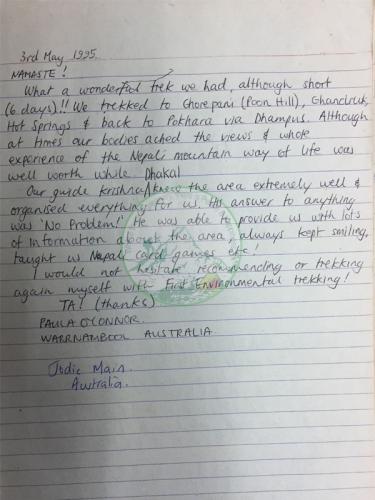 3rd May 1995.
NAMASTE!
What a wonderful trek we had, although short
(6 days)!! We trekked to Ghorepani (Poon Hill), Ghandruk,
Hot Springs & back to Pokhara via Dhampus. Although
at times our bodies ached the views & whole
experience of the Nepali mountain way of life was
well worth while. Dhakal
Our guide Krishna/knew the area extremely well &
organised everything for us. His answer to anything
was 'No Problem!' He was able to provide us with lots
of information about the area, always kept smiling,
taught us Nepali card games etc!
I would not hesitate recommending or trekking
again myself with First Environmental trekking!
TA! (thanks)
PAULA O'CONNOR.
WARRNAMBOOL AUSTRALIA.
Jodie Main.
Australia.